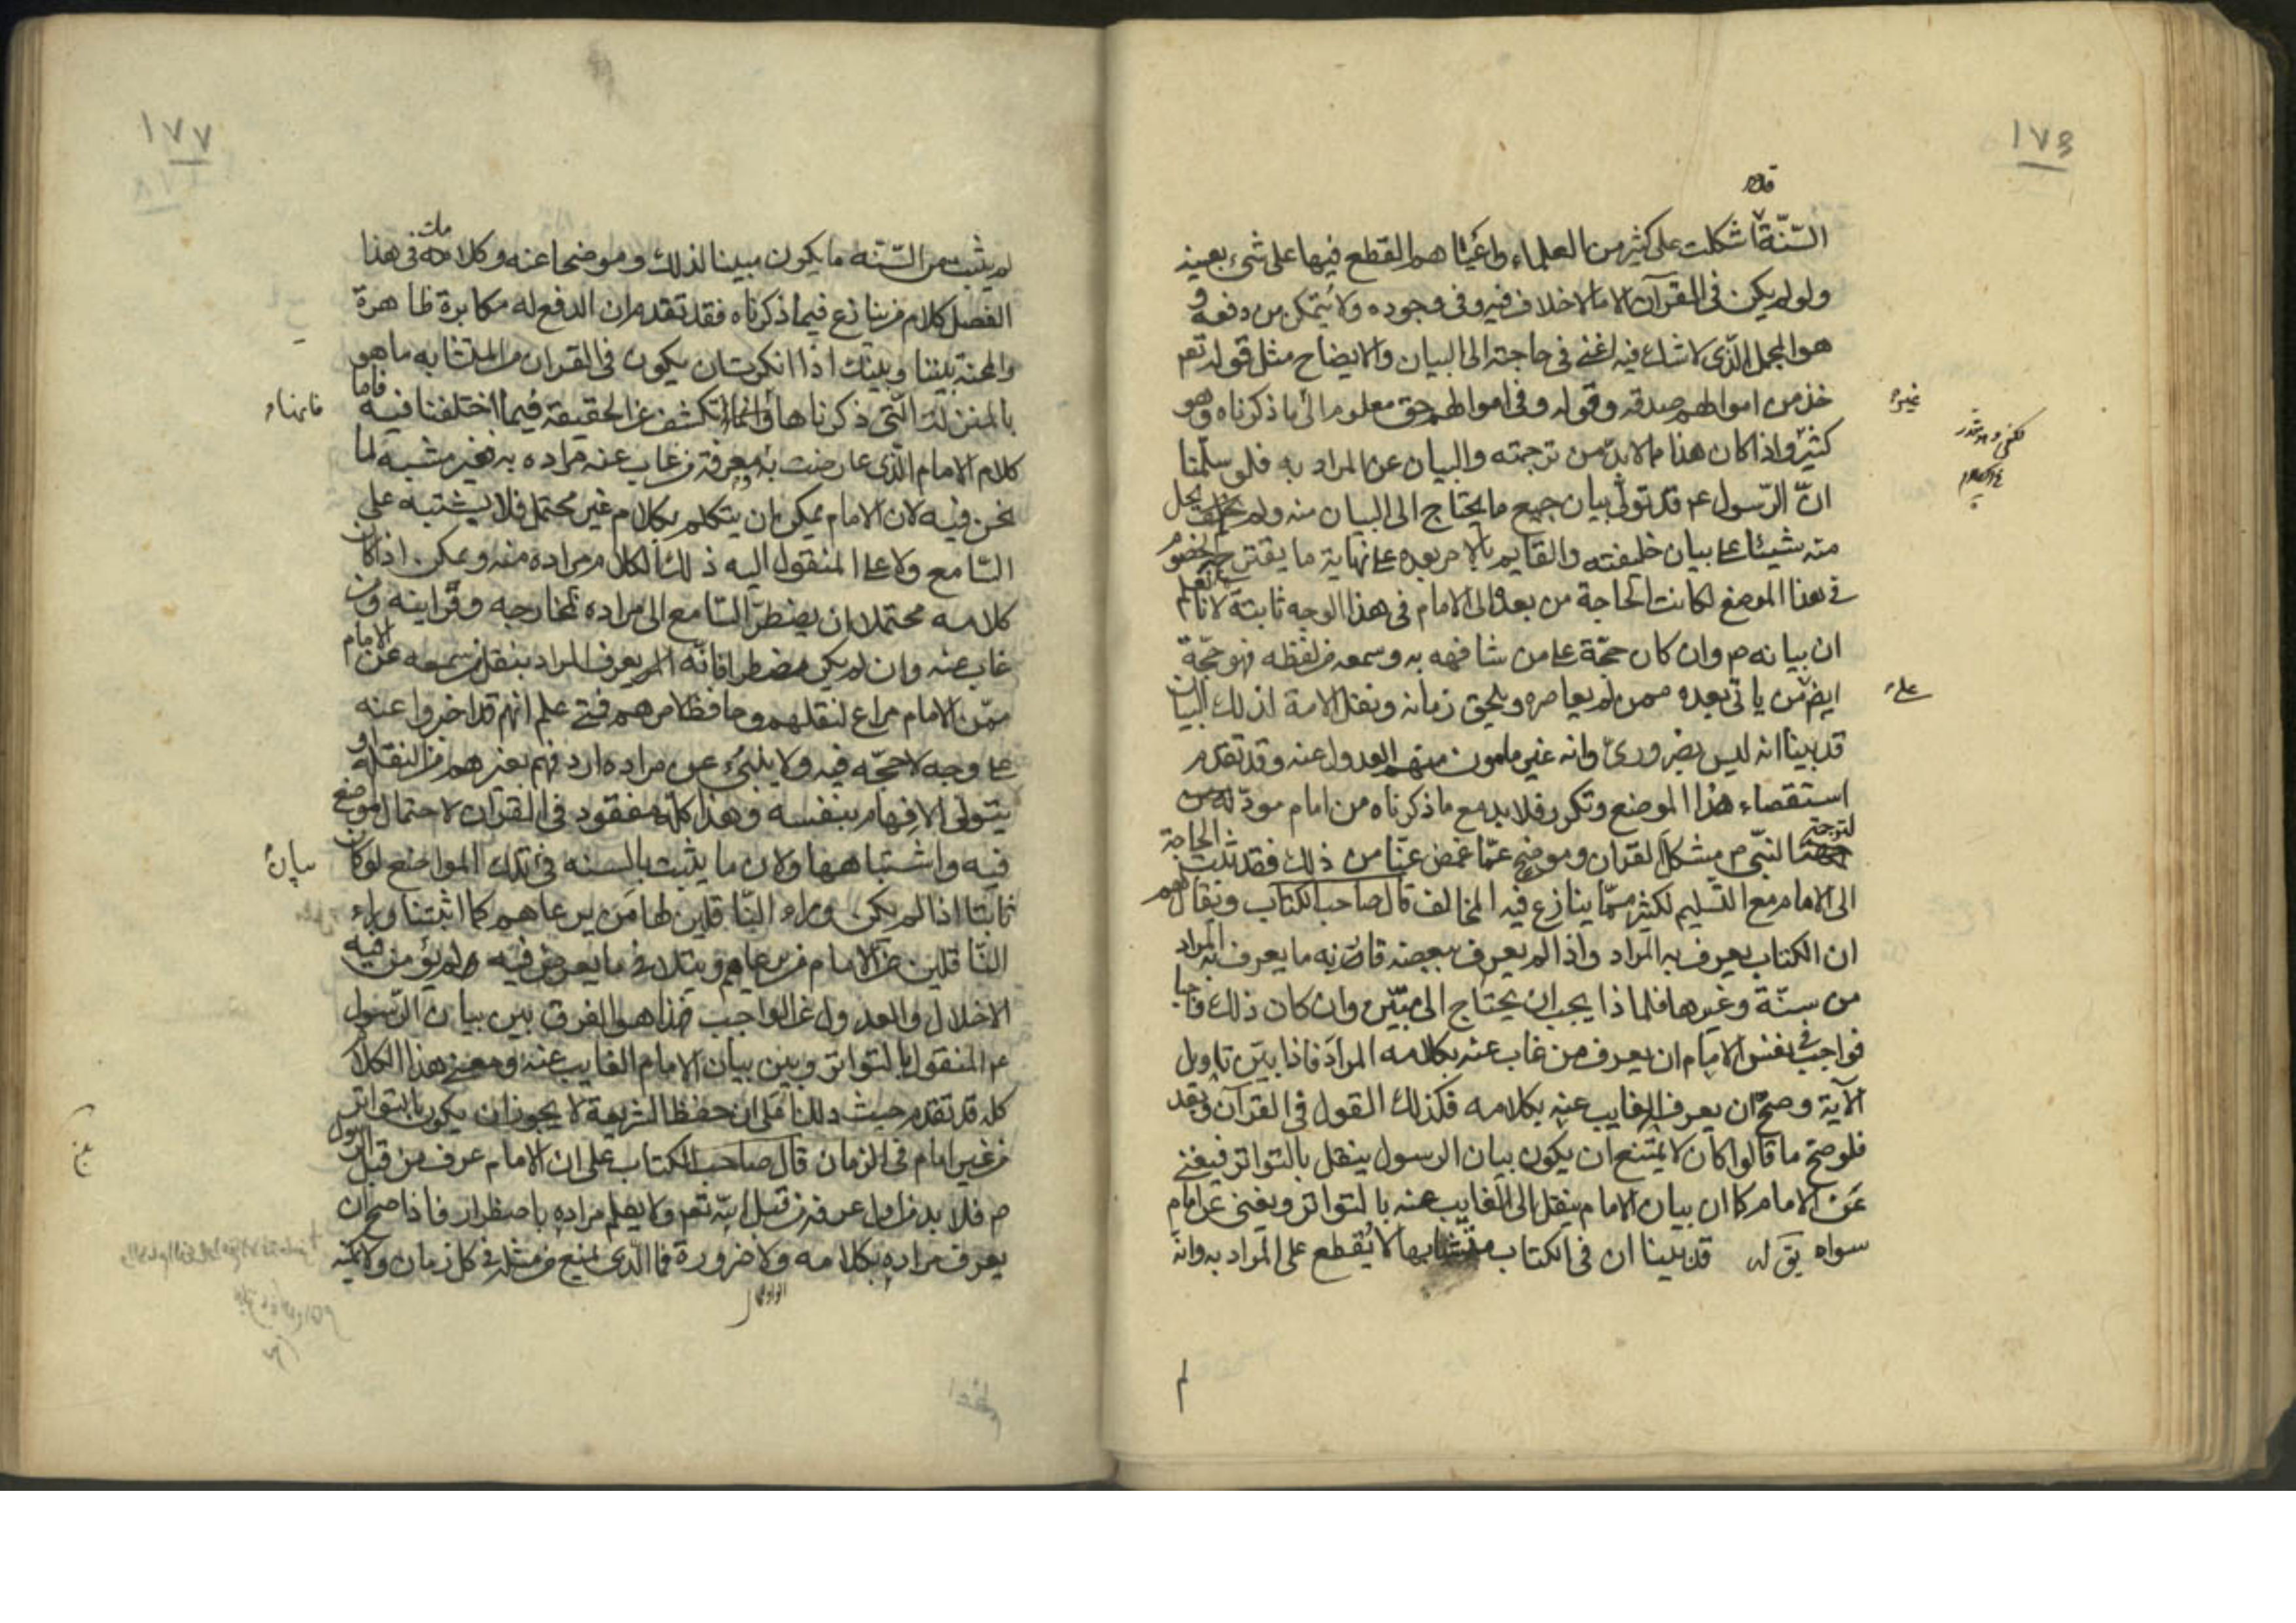 ١٧٦
قد
السّنّة اشكلت على كثير من العلماء واعياهم القطع فيها على شيء بعينه
ولو لم يكن في القرآن الا ما لا خلاف فيه وفي وجوده ولا يتمكن من دفعه و
هو المجمل الذى لا شك فيه اعنى في حاجته الى البيان والايضاح مثل قوله تعم
خذ من اموالهم صدقة وقوله وفى اموالهم حق معلوم الى ما ذكرناه وهو
غيره
كثير واذا كان هذا مما لا بدّ من ترجمته والبيان عن المراد به فلو سلّمنا
انّ الرّسول ع قد تولى بيان جميع ما يحتاج الى البيان منه ولم يخلف يحل
منه شيئا على بيان خليفته والقايم بالامر بعده على نهاية ما يقترحه الخصوم
في هذا الموضع لكانت الحاجة من بعده الى الامام في هذا الوجه ثابتة لانا نعلم
ان بيانه ص وان كان حجّة على من شافهه به وسمعه من لفظه فهو حجّة
ايض من ياتى بعده ممن لم يعاصره ويلحق زمانه ونقل الامة لذلك البيان
على
قد بينا انه ليس بضرورىّ وانه غير مامون منهم العدول عنه وقد تقدم
استقصاء هذا الموضع وتكرر فلا بد مع ما ذكرناه من امام مودّ له من
لترجمة النبي ص مشكل القرآن وموضح عمّا غمض عنّا من ذلك فقد ثبت الحاجة
الى الامام مع التسليم لكثير ممّا ينازع فيه المخالف قال صاحب الكتاب ويقال لهم
ان الكتاب يعرف به المراد واذا لم يعرف ببعضه قارنه ما يعرف به المراد
من سنّة وغيرها فلماذا يجب ان يحتاج الى مبيّن وان كان ذلك واجبا
فواجب في نفس الامام ان يعرف من غاب عنه بكلامه المراد فاذا بيّن تاويل
الآية وصحّ ان يعرف الغايب عنه بكلامه فكذلك القول في القرآن وبعد
فلو صح ما قالوا كان لا يمتنع ان يكون بيان الرسول ينقل بالتواتر فيغنى
عن الامام كما ان بيان الامام ينقل الى الغايب عنه بالتواتر ويغنى عن امام
سواه يق له قد بينا ان في الكتاب متشابها لا يقطع على المراد به وانه
لم
١٧٧
لم يثبت من السّنة ما يكون مبينا لذلك وموضحا عنه وكلامك في هذا
الفصل كلام من ينازع فيما ذكرناه فقد تقدم ان الدفع له مكابرة ظاهرة
والمحنة بيننا وبينك اذا انكرت ان يكون في القرآن من المتشابه ما هو
بالمنزلة التى ذكرناها تكشف عن الحقيقة فيما اختلفنا فيه فاما
كلام الامام الذى عارضت به معرفة من غاب عنه مراده به فغير مشبه لما
نحن فيه لان الامام يمكن ان يتكلم بكلام غير محتمل فلا يشتبه على
السّامع ولا على المنقول اليه ذلك الكلام مراده منه ويمكن اذا كان
كلامه محتملا ان يضطرّ السّامع الى مراده بمخارجه وقراينه ومن
غاب عنه وان لم يكن مضطرا فانّه يعرف المراد بنقل من سمعه عن الامام
ممّن الامام مراع لنقلهم وحافظ لامرهم فمتى علم انهم قد اخبروا عنه
على وجه لا حجّة فيه ولا ينبئ عن مراده اردفهم بغيرهم من النقلة او
يتولى الافهام بنفسه وهذا كلّه مفقود في القرآن لاحتمال موضع
فيه واشتباهها ولان ما يثبت بالسنه في تلك المواضع لو كان
بيان
ثابتا اذا لم يكن وراء النّاقلين لها من يرعاهم كما اثبتنا وراء
النّاقلين عن الامام من يرعاهم ويتلافى ما يعرض فيه ولم يؤمن فيه
الاخلال والعدول عن الواجب فهذا هو الفرق بين بيان الرّسول
ع المنقول بالتواتر وبين بيان الامام الغايب عنه ومعنى هذا الكلام
كله قد تقدم حيث دللنا على ان حفظ الشريعة لا يجوز ان يكون بالتواتر
من غير امام في الزمان قال صاحب الكتاب على ان الامام عرف من قبل الرسول
ص فلا بد من اول عرفه من قبل الله تعم ولا يعلم مراده باضطرار فاذا صح ان
يعرف مراده بكلامه ولا ضرورة فما الذى يمنع من مثله في كل زمان ولائمة